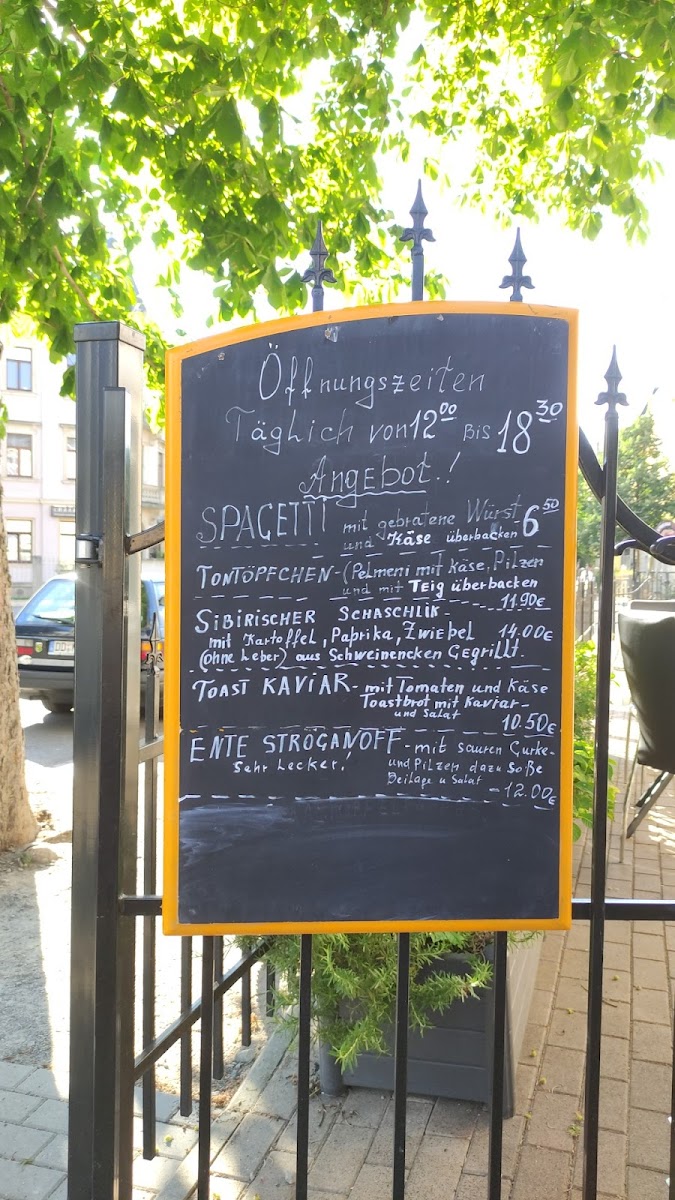 Öffnungszeiten
Täglich von 12⁰⁰ Bis 18³⁰
Angebot.!
SPAGETTI mit gebratene Würst 6⁵⁰
und Käse überbacken
TONTÖPFCHEN-(Pelmeni mit Käse, Pilzen
und mit Teig überbacken
11.90€
SIBIRISCHER SCHASCHLIK
mit Kartoffel, Paprika, Zwiebel 14.00€
(ohne Leber) aus Schweinencken Gegrillt.
TOAST KAVIAR - mit Tomaten und Käse
Toastbrot mit Kaviar-
und Salat
10.50€
ENTE STRÖGANOFF - mit sauren Gurke-
Sehr Lecker! und Pilzen dazu Soße
Beilage u Salat
-12.00€
DD